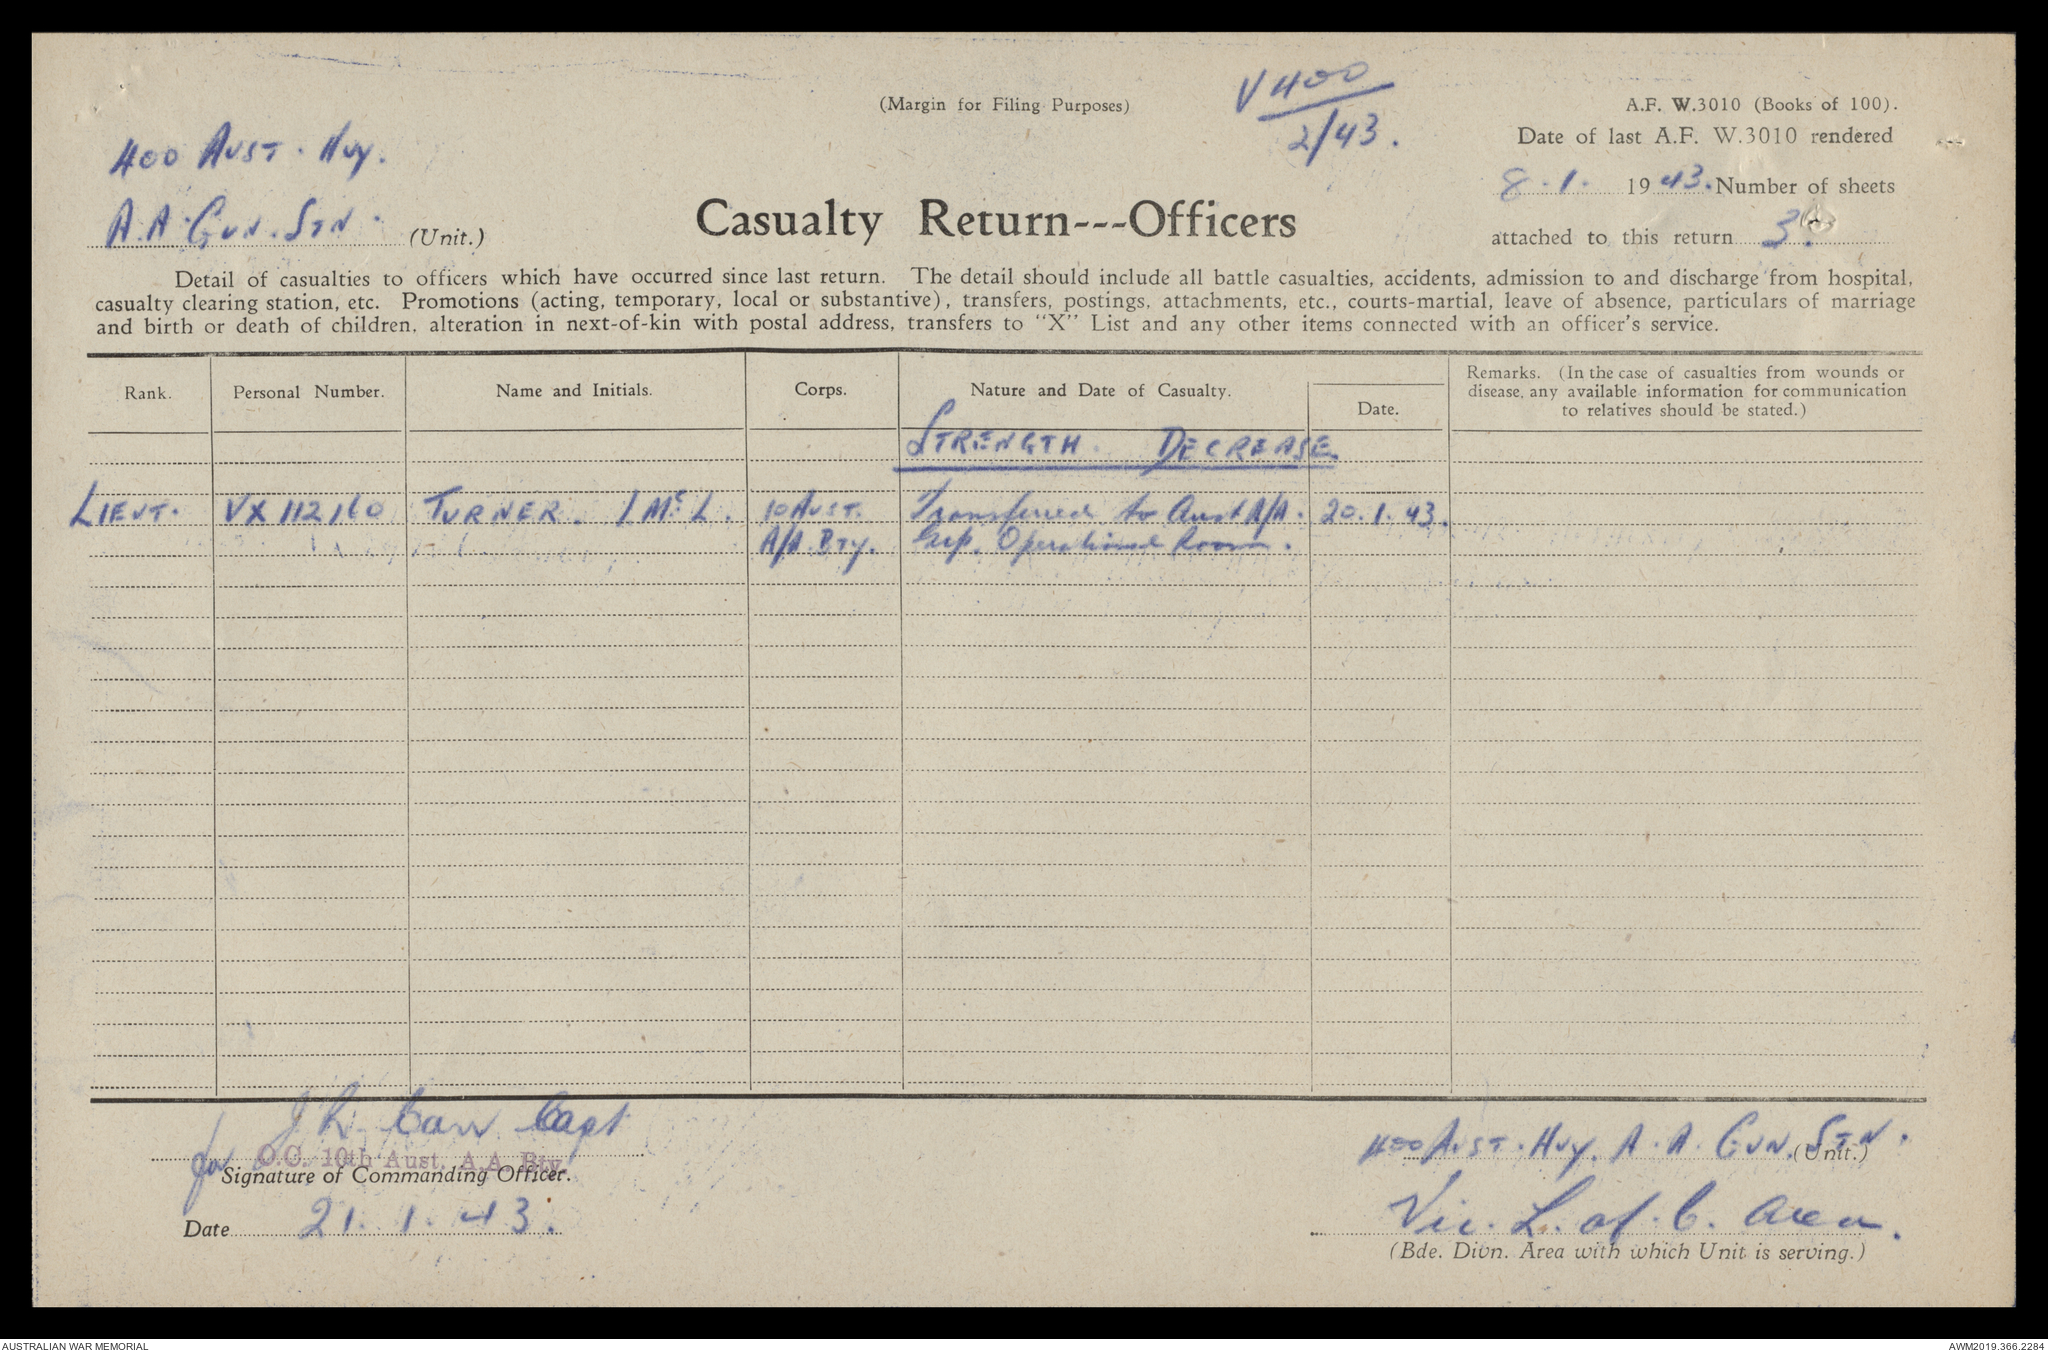 (Margin for Filing Purposes)
V 400
2/43.
A.F. W.3010 (Books of 100).
Date of last A.F. W.3010 rendered
8.1. 1943. Number of sheets
attached to this return 3.
400 AUST. HVY.
A.A. GUN. STN. (Unit.)
Casualty Return---Officers
Detail of casualties to officers which have occurred since last return. The detail should include all battle casualties, accidents, admission to and discharge from hospital,
casualty clearing station, etc. Promotions (acting, temporary, local or substantive), transfers, postings, attachments, etc., courts-martial, leave of absence, particulars of marriage
and birth or death of children, alteration in next-of-kin with postal address, transfers to "X" List and any other items connected with an officer's service.
Rank. Personal Number. Name and Initials. Corps. Nature and Date of Casualty. Date. Remarks. (In the case of casualties from wounds or
disease, any available information for communication
to relatives should be stated.)
STRENGTH. DECREASE.
LIEUT. VX 112160 TURNER. I McL. 10 AUST. Transferred to Aust A/A. 20.1.43.
A/A. BTY. Grp. Operational Room.
J R Carr Capt
for O.C. 10th Aust. A.A. Bty.
Signature of Commanding Officer.
Date 21.1.43.
400 AUST. HVY. A.A. GUN. STN. (Unit.)
Vic. L. of C. Area.
(Bde. Divn. Area with which Unit is serving.)
AUSTRALIAN WAR MEMORIAL
AWM2019.366.2284